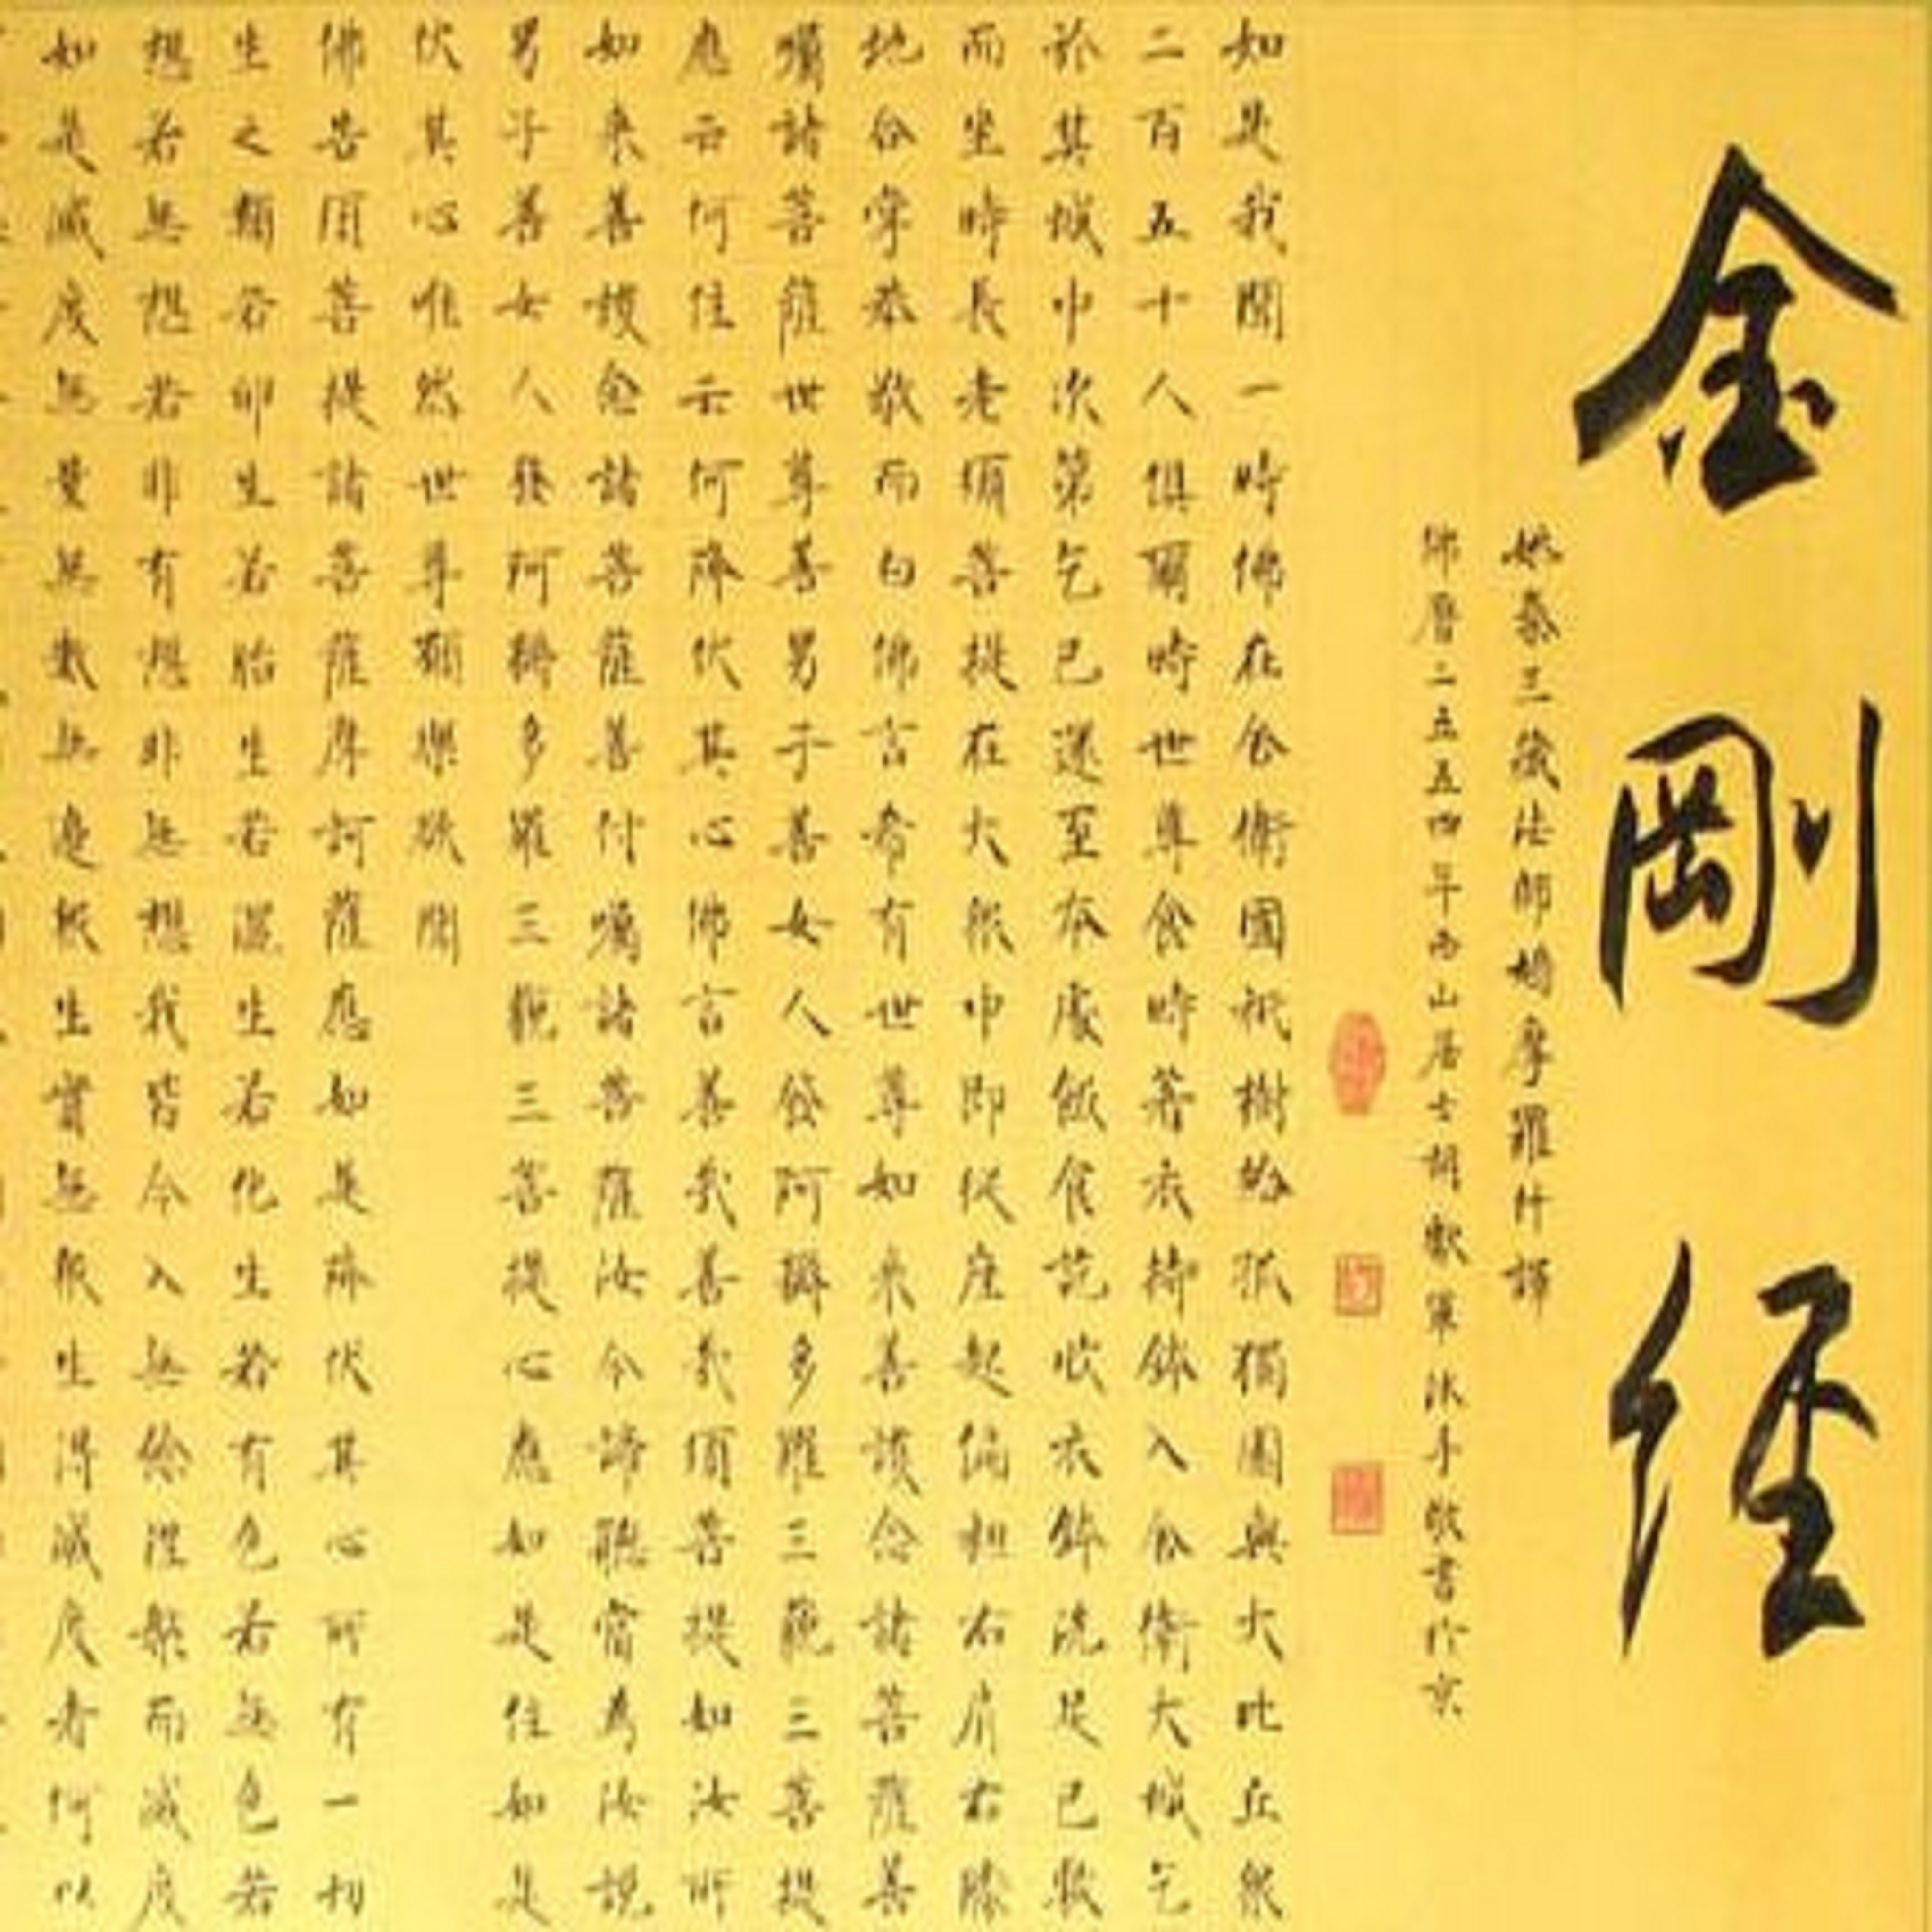 金剛經
姚秦三藏法師鳩摩羅什譯
佛曆二五五四年西山居士胡軍沐手敬書於京
如是我聞一時佛在舍衛國祇樹給孤獨園與大比丘眾
二百五十人俱爾時世尊食時著衣持鉢入舍衛大城乞
於其城中次第乞已還至本處飯食訖收衣鉢洗足已敷
而坐時長老須菩提在大眾中即從座起偏袒右肩右膝
地合掌恭敬而白佛言希有世尊如來善護念諸菩薩善
囑諸菩薩世尊善男子善女人發阿耨多羅三藐三菩提
應云何住云何降伏其心佛言善哉善哉須菩提如汝所
如來善護念諸菩薩善付囑諸菩薩汝今諦聽當為汝說
男子善女人發阿耨多羅三藐三菩提心應如是住如是
伏其心唯然世尊願樂欲聞
佛告須菩提諸菩薩摩訶薩應如是降伏其心所有一切
生之類若卵生若胎生若濕生若化生若有色若無色若
想若無想若非有想非無想我皆令入無餘涅槃而滅度
如是滅度無量無數無邊眾生實無眾生得滅度者何以